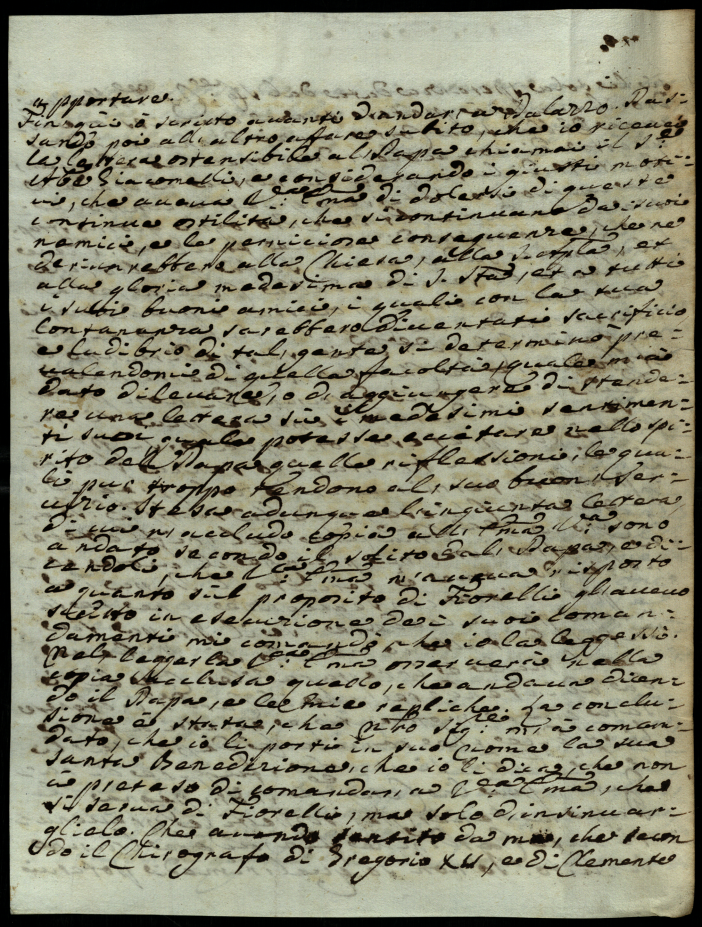 apportare.
Fin qui ò scritto avanti d'andar a Palazzo. Pas-
sando poi all'altro affare subito, che io ricevei
la lettera ostensibile al Papa chiamai il Sig.re
Ab.e Giacomelli, e considerando i giusti moti-
vi, che aveva V.ra Em.a di dolersi di queste
continue ostilità, che si continuano da suoi
nemici, e le perniciose conseguenze, che ne
deriverebbero alla Chiesa, alla, et
alla gloria medesima di S. S.tà, et a tutti
i suoi buoni amici, i quali con la sua
lontananza sarebbero diventati sacrificio
e ludibrio di tal gente si determinò pre-
valendomi di quella facoltà, quale mi à
dato di levare, o d'aggiungere di stende-
re una lettera su i medesimi sentimen-
ti suoi quale potesse eccitare nello spi-
rito del Papa quelle riflessioni, le qua-
li pur troppo tendono al suo buon ser-
vizio. Stesa adunque l'ingiunta lettera
di cui n'accludo copia all'Em.a V.ra sono
andato secondo il solito dal Papa, e di-
cendoli, che V.ra Em.a m'aveva risposto
a quanto sul proposito di Fiorelli gli avevo
scritto in esecuzione de i suoi coman-
damenti mi comandò, che io la leggessi.
Nel leggerla V.ra Em.a osserverà nella
copia acclusa quello, che andava dicen-
do il Papa, e le mie repliche. La conclu-
sione è stata, che N.ro Sig.re m'à coman-
dato, che io li porti in suo nome la sua
santa Benedizione, che io li dica, che non
à preteso di comandar, a V.ra Em.a, che
si serva di Fiorelli, ma solo d'insinuar-
glielo. Che avendo sentito da me, che secon
do il Chirografo di Gregorio XV, e di Clemente